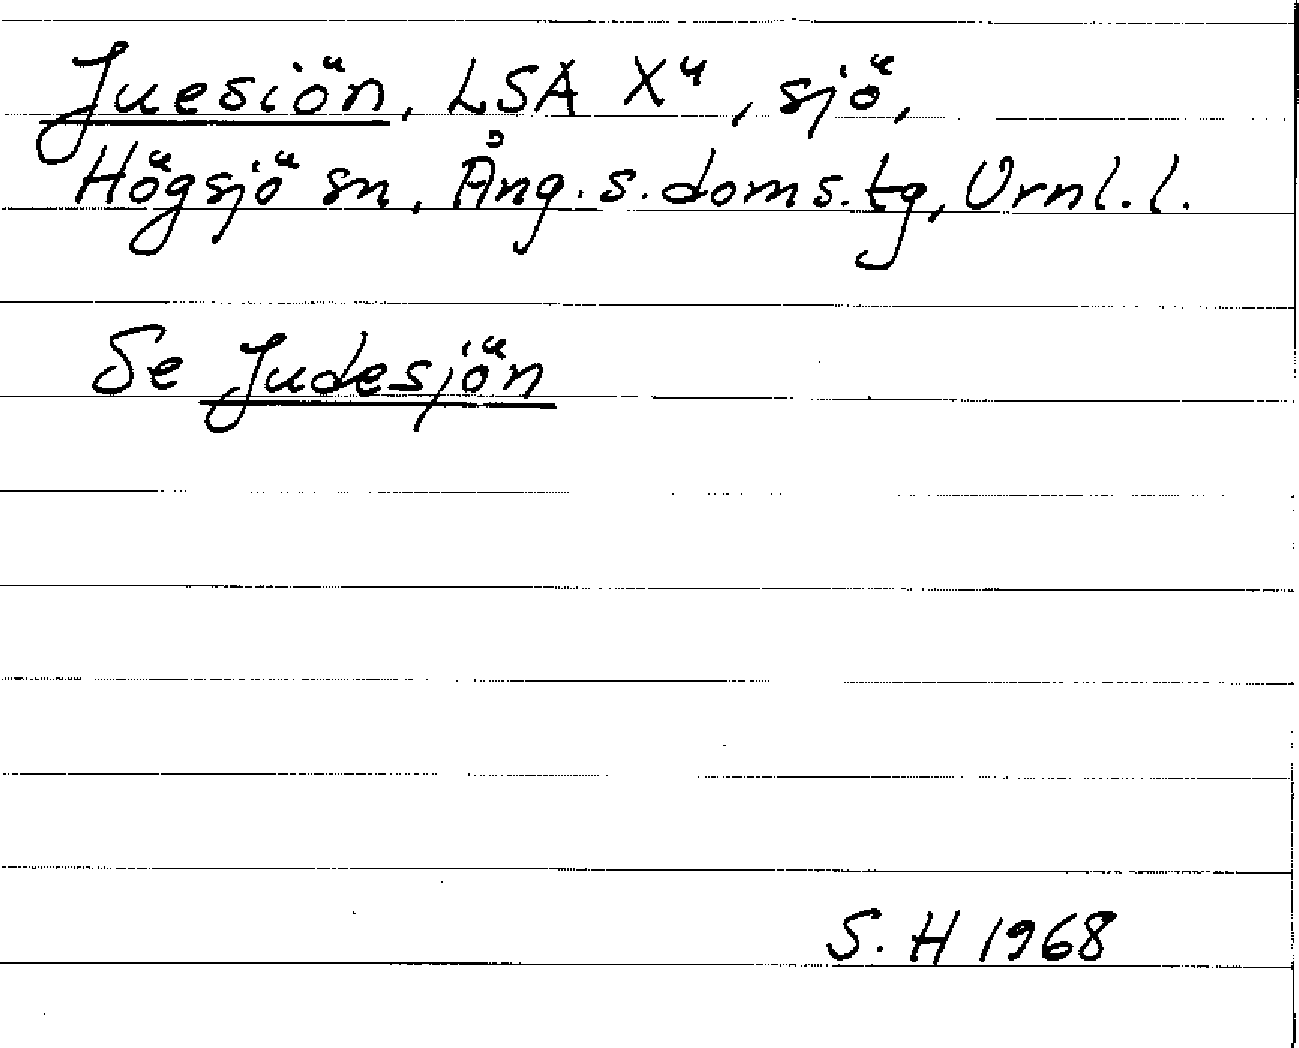 Juesiön, LSA X⁴, sjö,
Högsjö sn, Ång. s. doms.tg, Vrnl. l.
Se Judesjön
S. H 1968